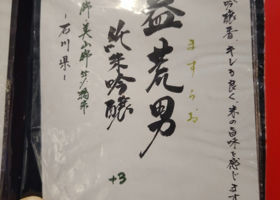 吟醸香 キレも良く、米の旨味を感じます
益荒男
ますらお
純米吟醸
+3
美山錦
-石川県-